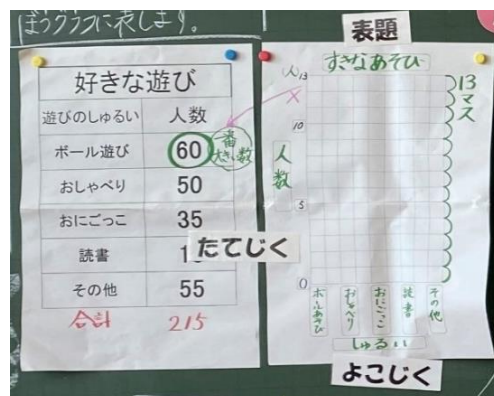 ぼうグラフに表します。
好きな遊び
遊びのしゅるい 人数
ボール遊び 60
一番大きい数
おしゃべり 50
おにごっこ 35
読書 1
その他 55
合計 215
たてじく
表題
すきなあそび
人 13
10
5
0
人数
13マス
ボールあそび
おしゃべり
おにごっこ
読書
その他
しゅるい
よこじく